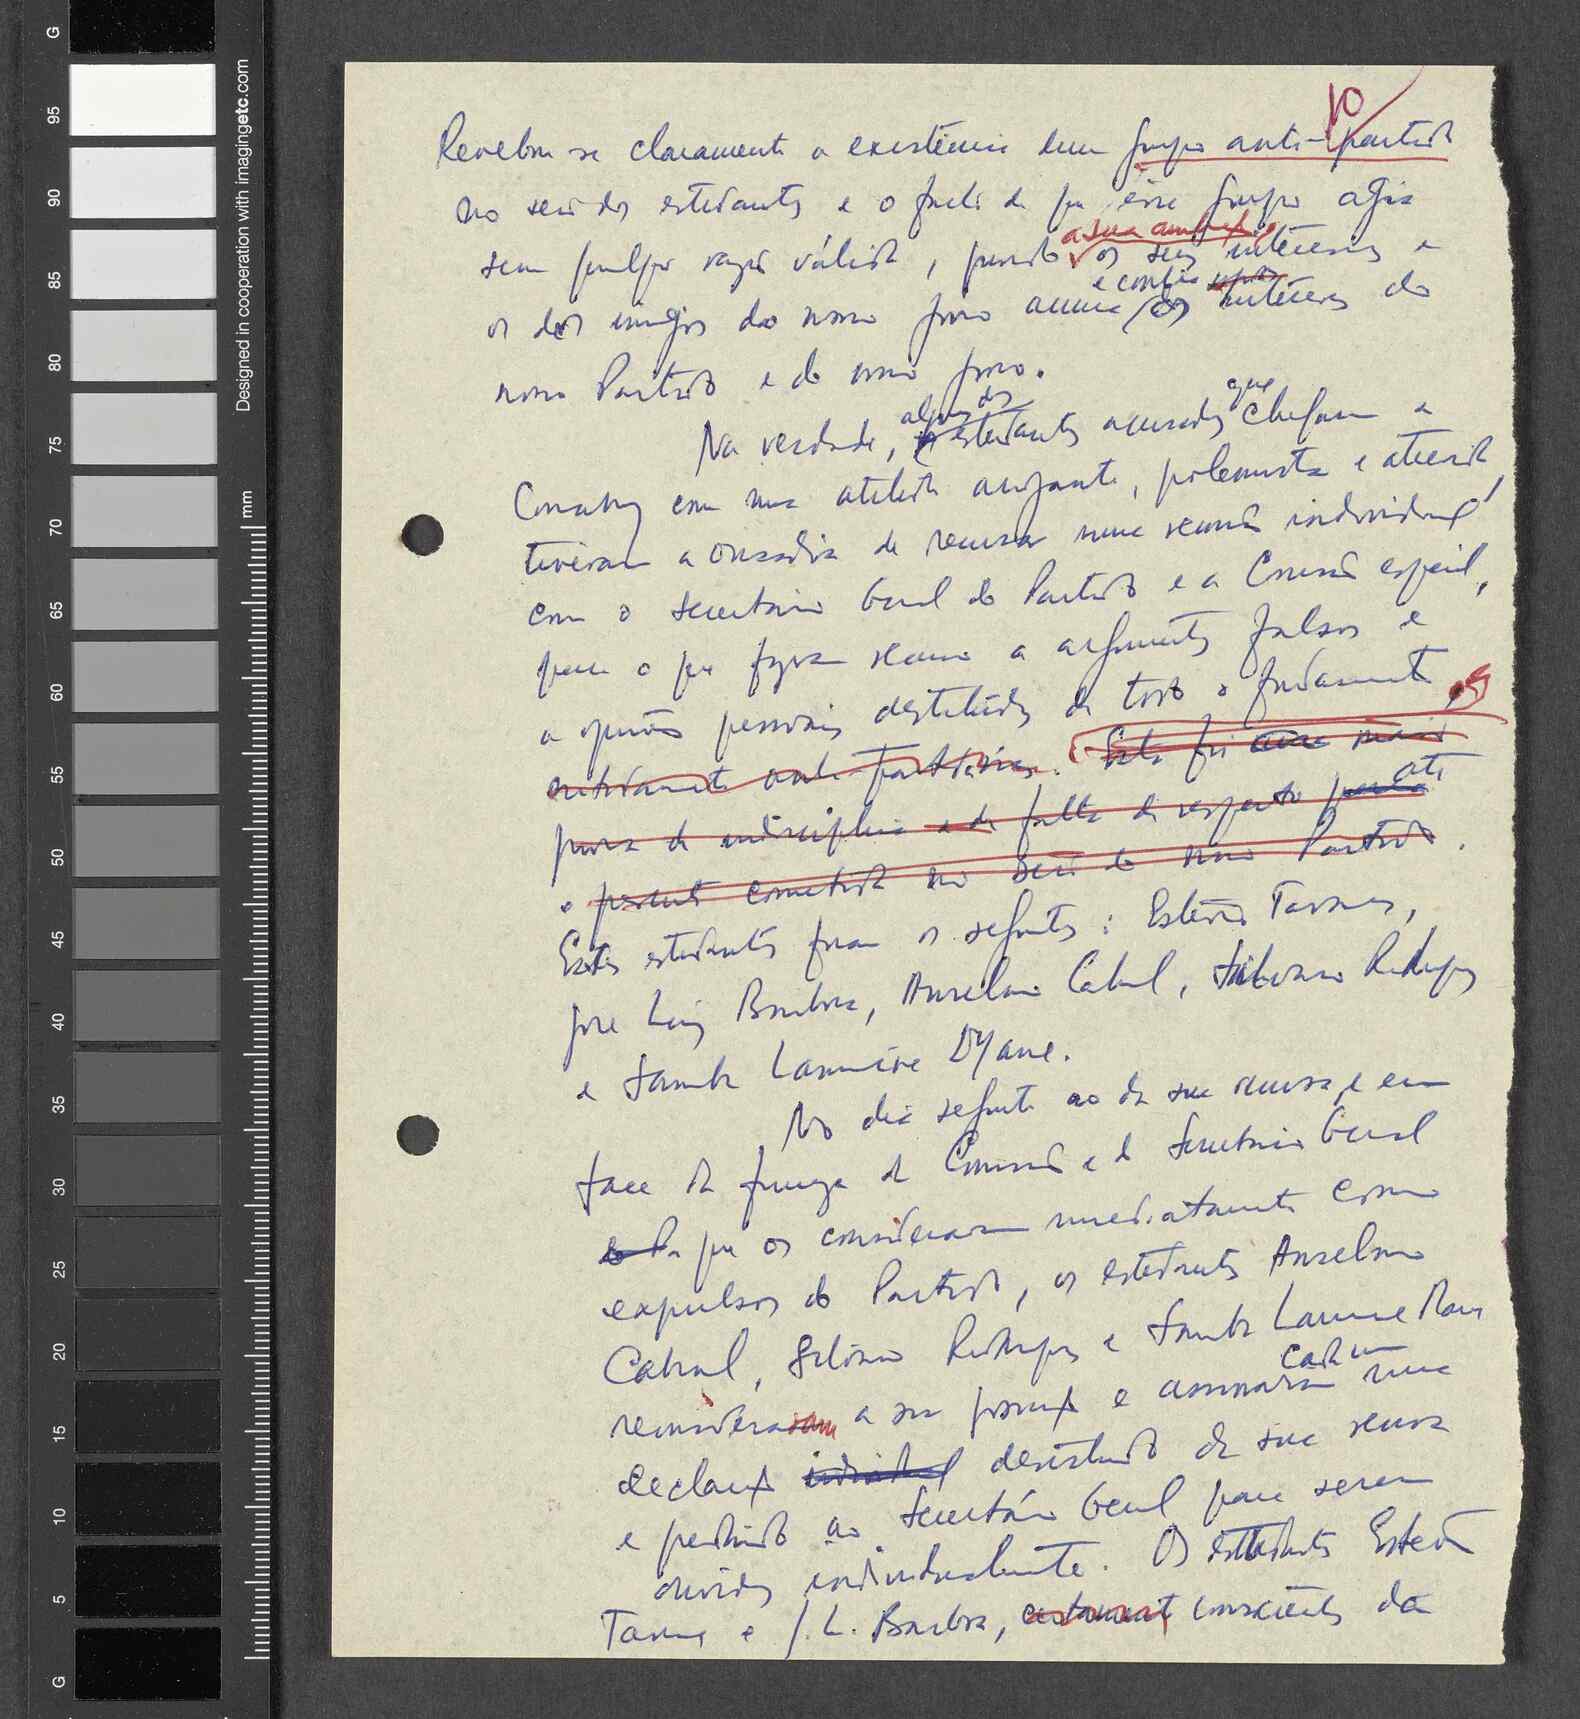 10
Revelou-se claramente a existência dum grupo anti-partido
no seio dos estudantes e o facto de que esse grupo agia
sem qualquer razão válida, pondo a sua ambição, os seus interesses e
os dos inimigos do nosso povo acima e contra os interesses do
nosso Partido e do nosso povo.
Na verdade, alguns dos estudantes acusados que chegaram a
Conakry com uma atitude arrogante, polemista e
tiveram a ousadia de recusar uma reunião individual
com o Secretário Geral do Partido e a Comissão especial,
para o que fizeram recurso a argumentos falsos e
a opiniões pessoais destituídas de todo o fundamento
nitidamente anti-partidárias. Esta foi a mais
prova de indisciplina e de falta de respeito até
o presente cometida no seio do nosso Partido.
Estes estudantes foram os seguintes: Estêvão Tavares,
José Luis Barbosa, Anselmo Cabral, Silvano Rodrigues
e Samba Lamine Mané.
No dia seguinte ao da sua recusa, e em
face da firmeza da Comissão e do Secretário Geral
que os consideraram imediatamente como
expulsos do Partido, os estudantes Anselmo
Cabral, Silvano Rodrigues e Samba Lamine Mané
reconsideraram a sua posição e assinaram cada um uma
declaração individual desistindo da sua recusa
e pedindo ao Secretário Geral para serem
ouvidos individualmente. Os estudantes Estêvão
Tavares e J. L. Barbosa, certamente conscientes da
G
95
90
85
80
75
70
65
60
55
50
45
40
35
30
25
20
15
10
5
G
mm
Designed in cooperation with imagingetc.com